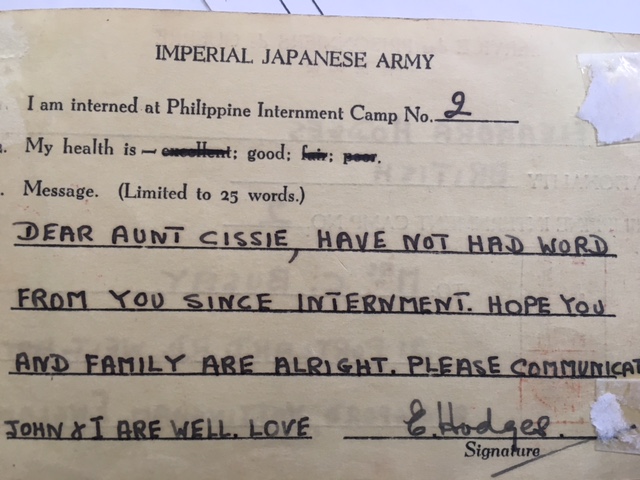 IMPERIAL JAPANESE ARMY
I am interned at Philippine Internment Camp No. 2
My health is — excellent; good; fair; poor.
Message. (Limited to 25 words.)
DEAR AUNT CISSIE, HAVE NOT HAD WORD
FROM YOU SINCE INTERNMENT. HOPE YOU
AND FAMILY ARE ALRIGHT. PLEASE COMMUNICAT
JOHN & I ARE WELL. LOVE E. Hodges.
Signature